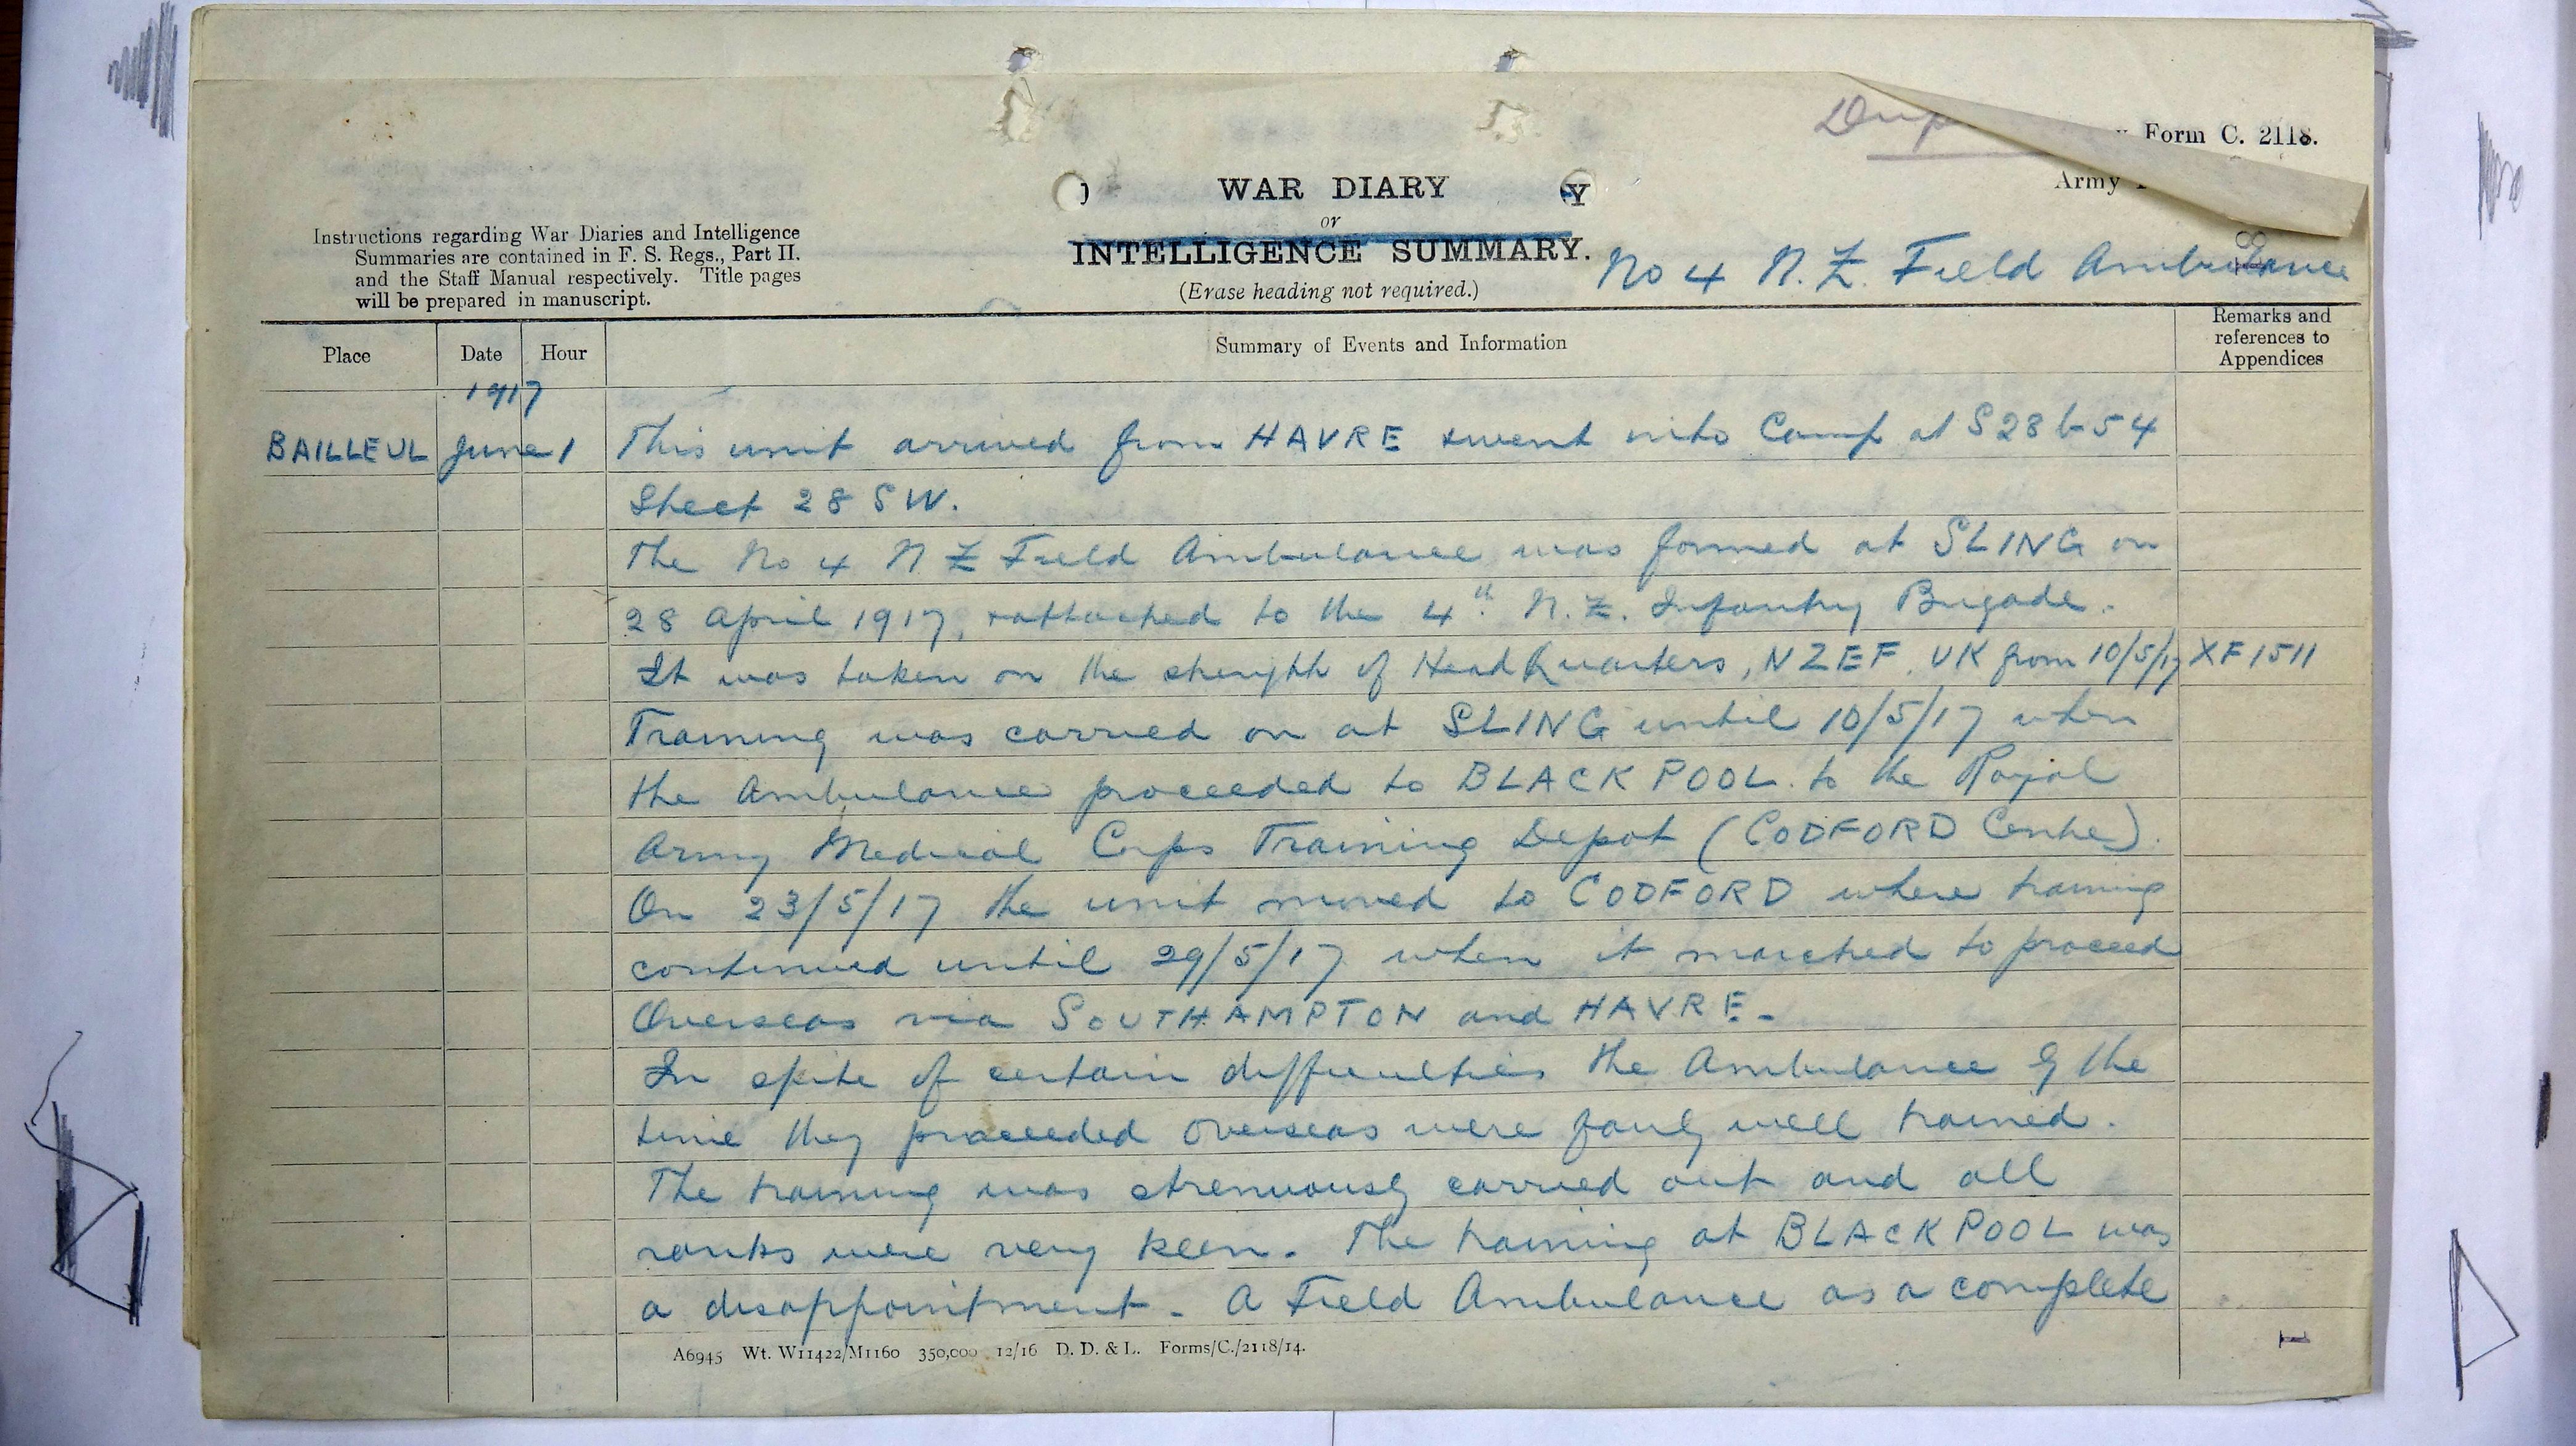 Form C. 2118.
Army
WAR DIARY
or
INTELLIGENCE SUMMARY.
(Erase heading not required.)
No 4 N.Z. Field Ambulance
Instructions regarding War Diaries and Intelligence
Summaries are contained in F. S. Regs., Part II.
and the Staff Manual respectively. Title pages
will be prepared in manuscript.
Place
Date
Hour
Summary of Events and Information
Remarks and
references to
Appendices
1917
BAILLEUL June 1 This unit arrived from HAVRE & went into Camp at S 28 b 54
Sheet 28 SW.
The No 4 N Z Field Ambulance was formed at SLING on
28 April 1917, & attached to the 4th N.Z. Infantry Brigade.
It was taken on the strength of HeadQuarters, NZEF. UK from 10/5/17 XF 1511
Training was carried on at SLING until 10/5/17 when
the Ambulance proceeded to BLACKPOOL. to the Royal
Army Medical Corps Training Depot (CODFORD Centre).
On 23/5/17 the unit moved to CODFORD where training
continued until 29/5/17 when it marched to proceed
Overseas via SOUTHAMPTON and HAVRE.
In spite of certain difficulties the Ambulance by the
time they proceeded overseas were fairly well trained.
The training was strenuously carried out and all
ranks were very keen. The training at BLACKPOOL was
a disappointment. A Field Ambulance as a complete
A6945 Wt. W11422/M1160 350,000 12/16 D. D. & L. Forms/C./2118/14.
1